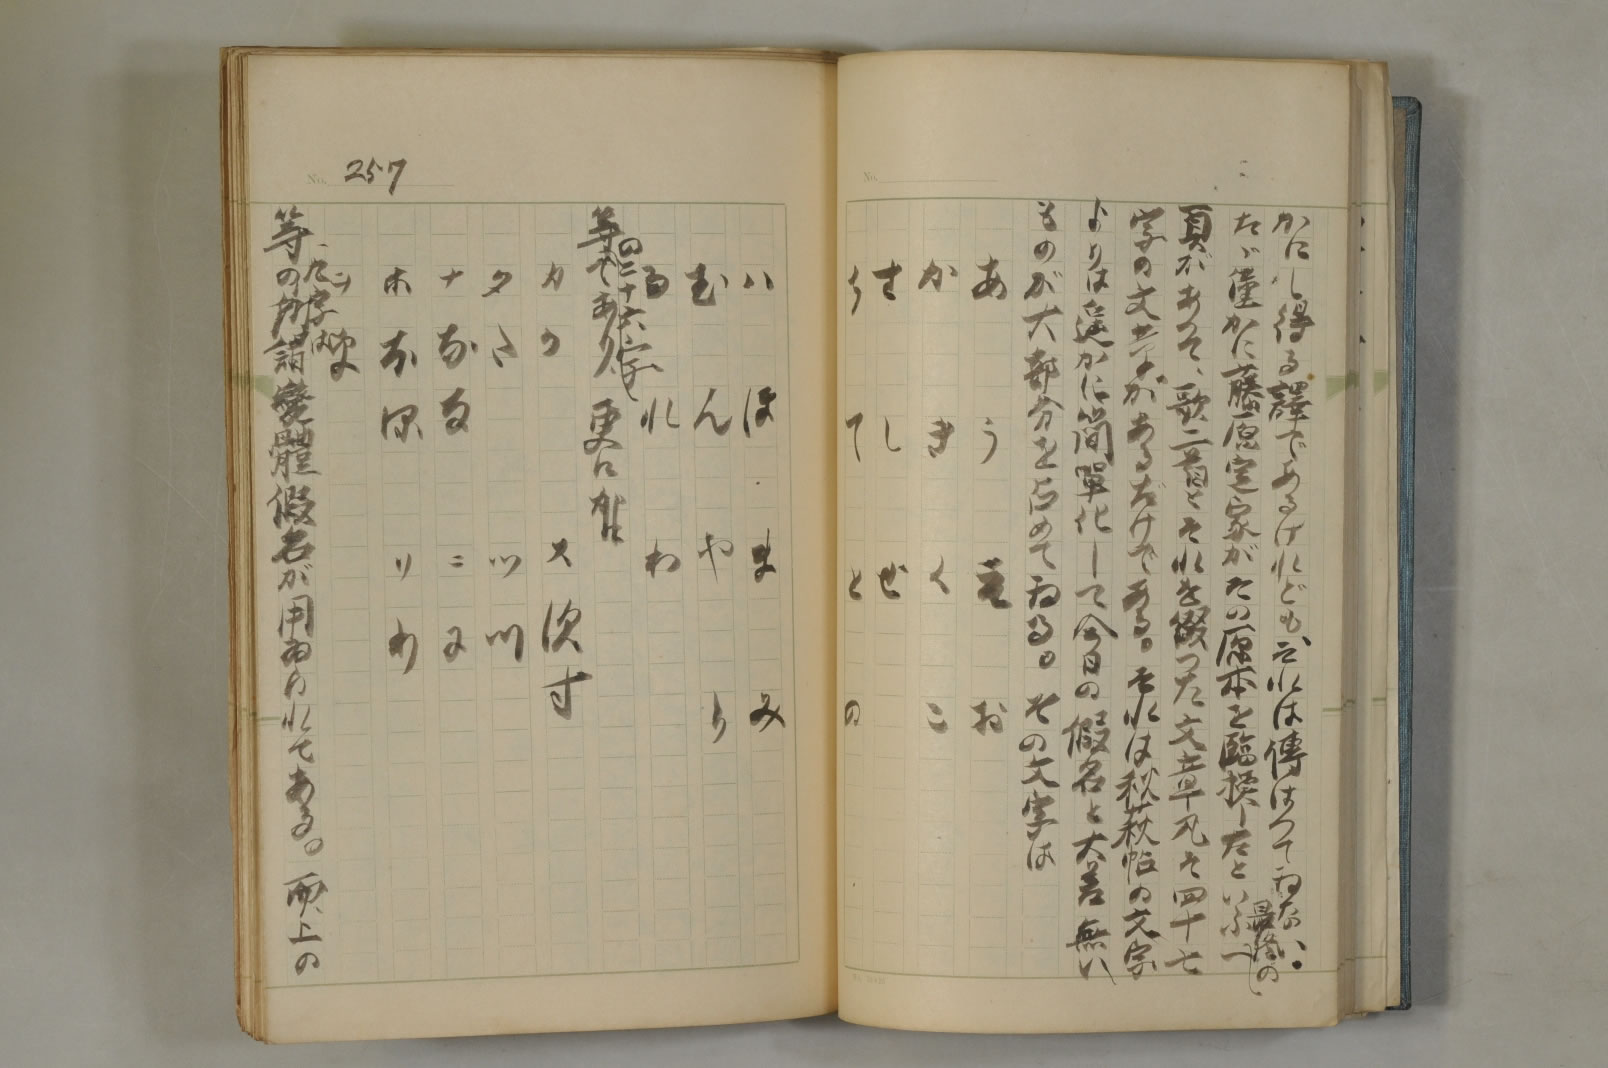 かにし得る譯であるけれども、それは傳はつてゐない。
たゞ僅かに藤原定家がたの原本を臨模したといふ最後の一
頁があつて、歌二首とそれを綴つた文章凡そ四十七
字の文字があるだけである。それは秋萩帖の文字
よりは遥かに簡單化して今日の假名と大差無い
ものが大部分を占めてゐる。その文字は
あ う え お
か き く こ
さ し せ
う て と の
No.
ハ は ま み
む ん や り
る れ わ
等の二十六字であり、更に
カ か ス 須 す
タ た ツ 川
ナ な る ニ に
ホ ほ 保 リ り
等の所謂變體假名が用ゐられてある。而、上の
No. 257